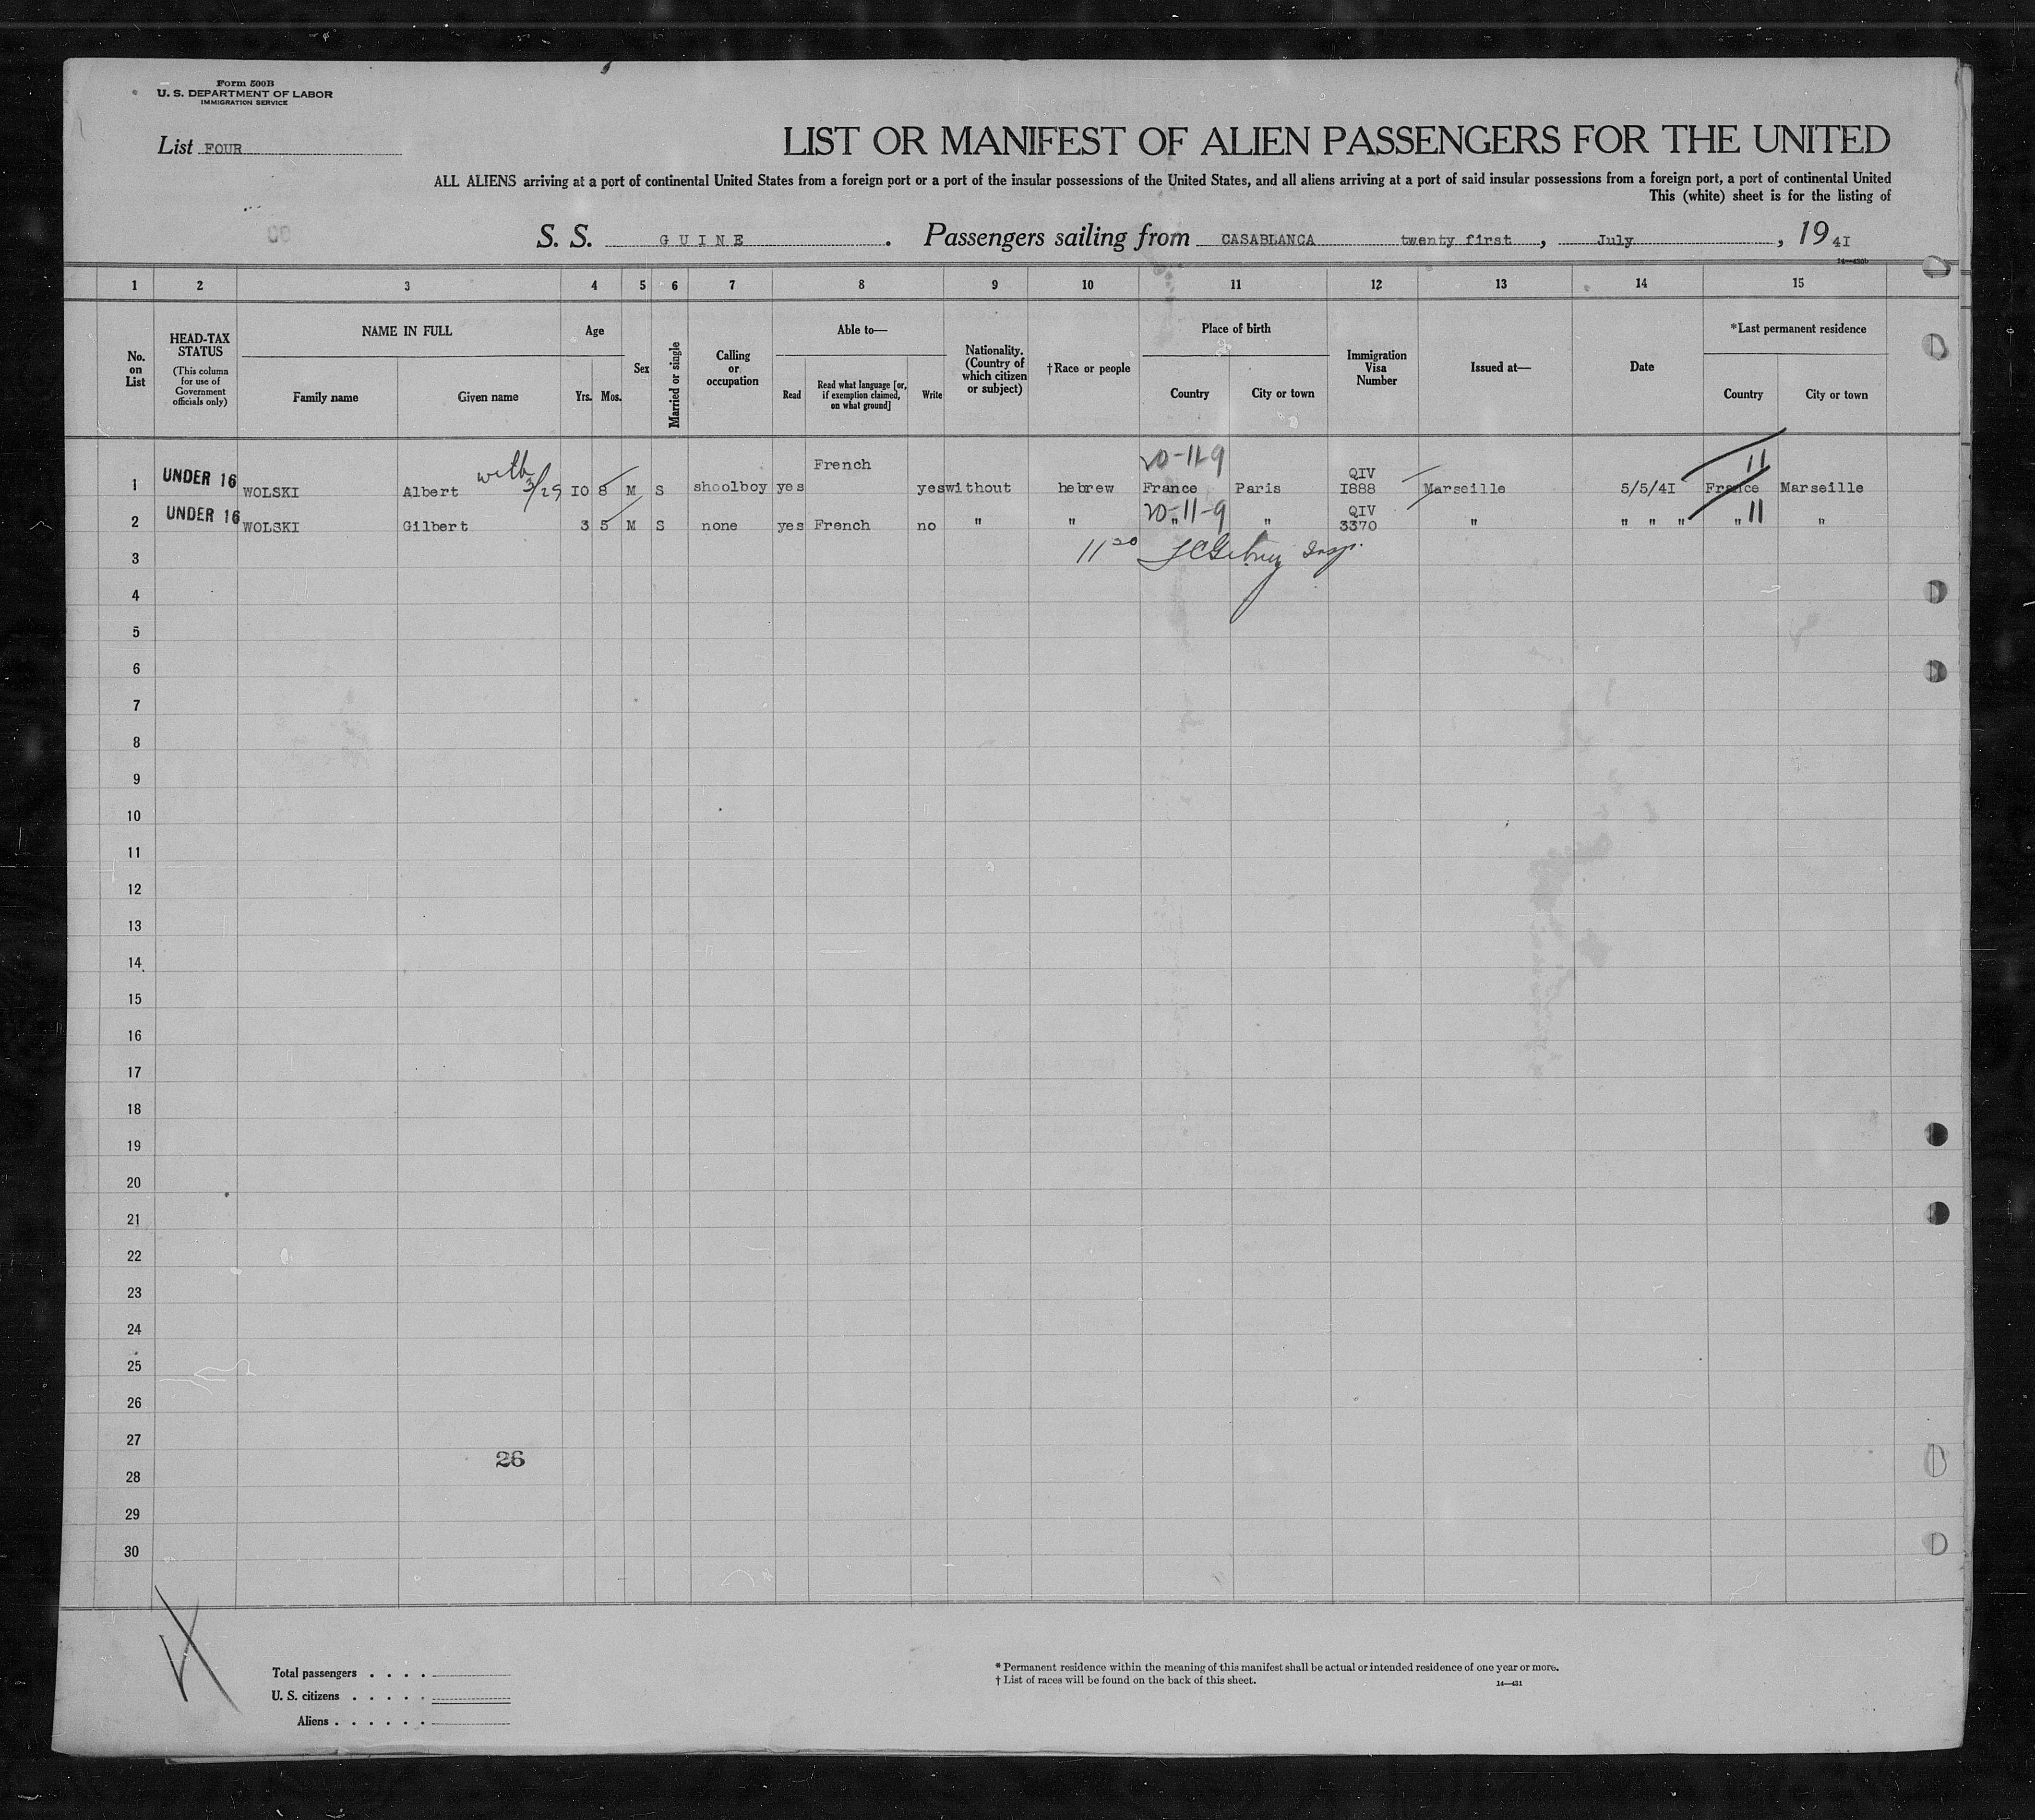 Form 500B
U. S. DEPARTMENT OF LABOR
IMMIGRATION SERVICE
List FOUR
LIST OR MANIFEST OF ALIEN PASSENGERS FOR THE UNITED
ALL ALIENS arriving at a port of continental United States from a foreign port or a port of the insular possessions of the United States, and all aliens arriving at a port of said insular possessions from a foreign port, a port of continental United
This (white) sheet is for the listing of
S. S. GUINE. Passengers sailing from CASABLANCA twenty first, July, 1941
14—430b
1 2 3 4 5 6 7 8 9 10 11 12 13 14 15
No. on List
HEAD-TAX STATUS (This column for use of Government officials only)
NAME IN FULL
Family name Given name
Age
Yrs. Mos.
Sex
Married or single
Calling or occupation
Able to—
Read Read what language [or, if exemption claimed, on what ground] Write
Nationality. (Country of which citizen or subject)
†Race or people
Place of birth
Country City or town
Immigration Visa Number
Issued at—
Date
*Last permanent residence
Country City or town
with 3/29 20-11-9 11
1 UNDER 16 WOLSKI Albert 10 8 M S shoolboy yes French yes without hebrew France Paris QIV 1888 Marseille 5/5/41 France Marseille
20-11-9 11
2 UNDER 16 WOLSKI Gilbert 3 5 M S none yes French no " " " " QIV 3370 " " " " " "
3 11 20 Insp.
4
5
6
7
8
9
10
11
12
13
14
15
16
17
18
19
20
21
22
23
24
25
26
27
26
28
29
30
Total passengers . . . .
U. S. citizens . . . . .
Aliens . . . . . .
* Permanent residence within the meaning of this manifest shall be actual or intended residence of one year or more.
† List of races will be found on the back of this sheet.
14—431